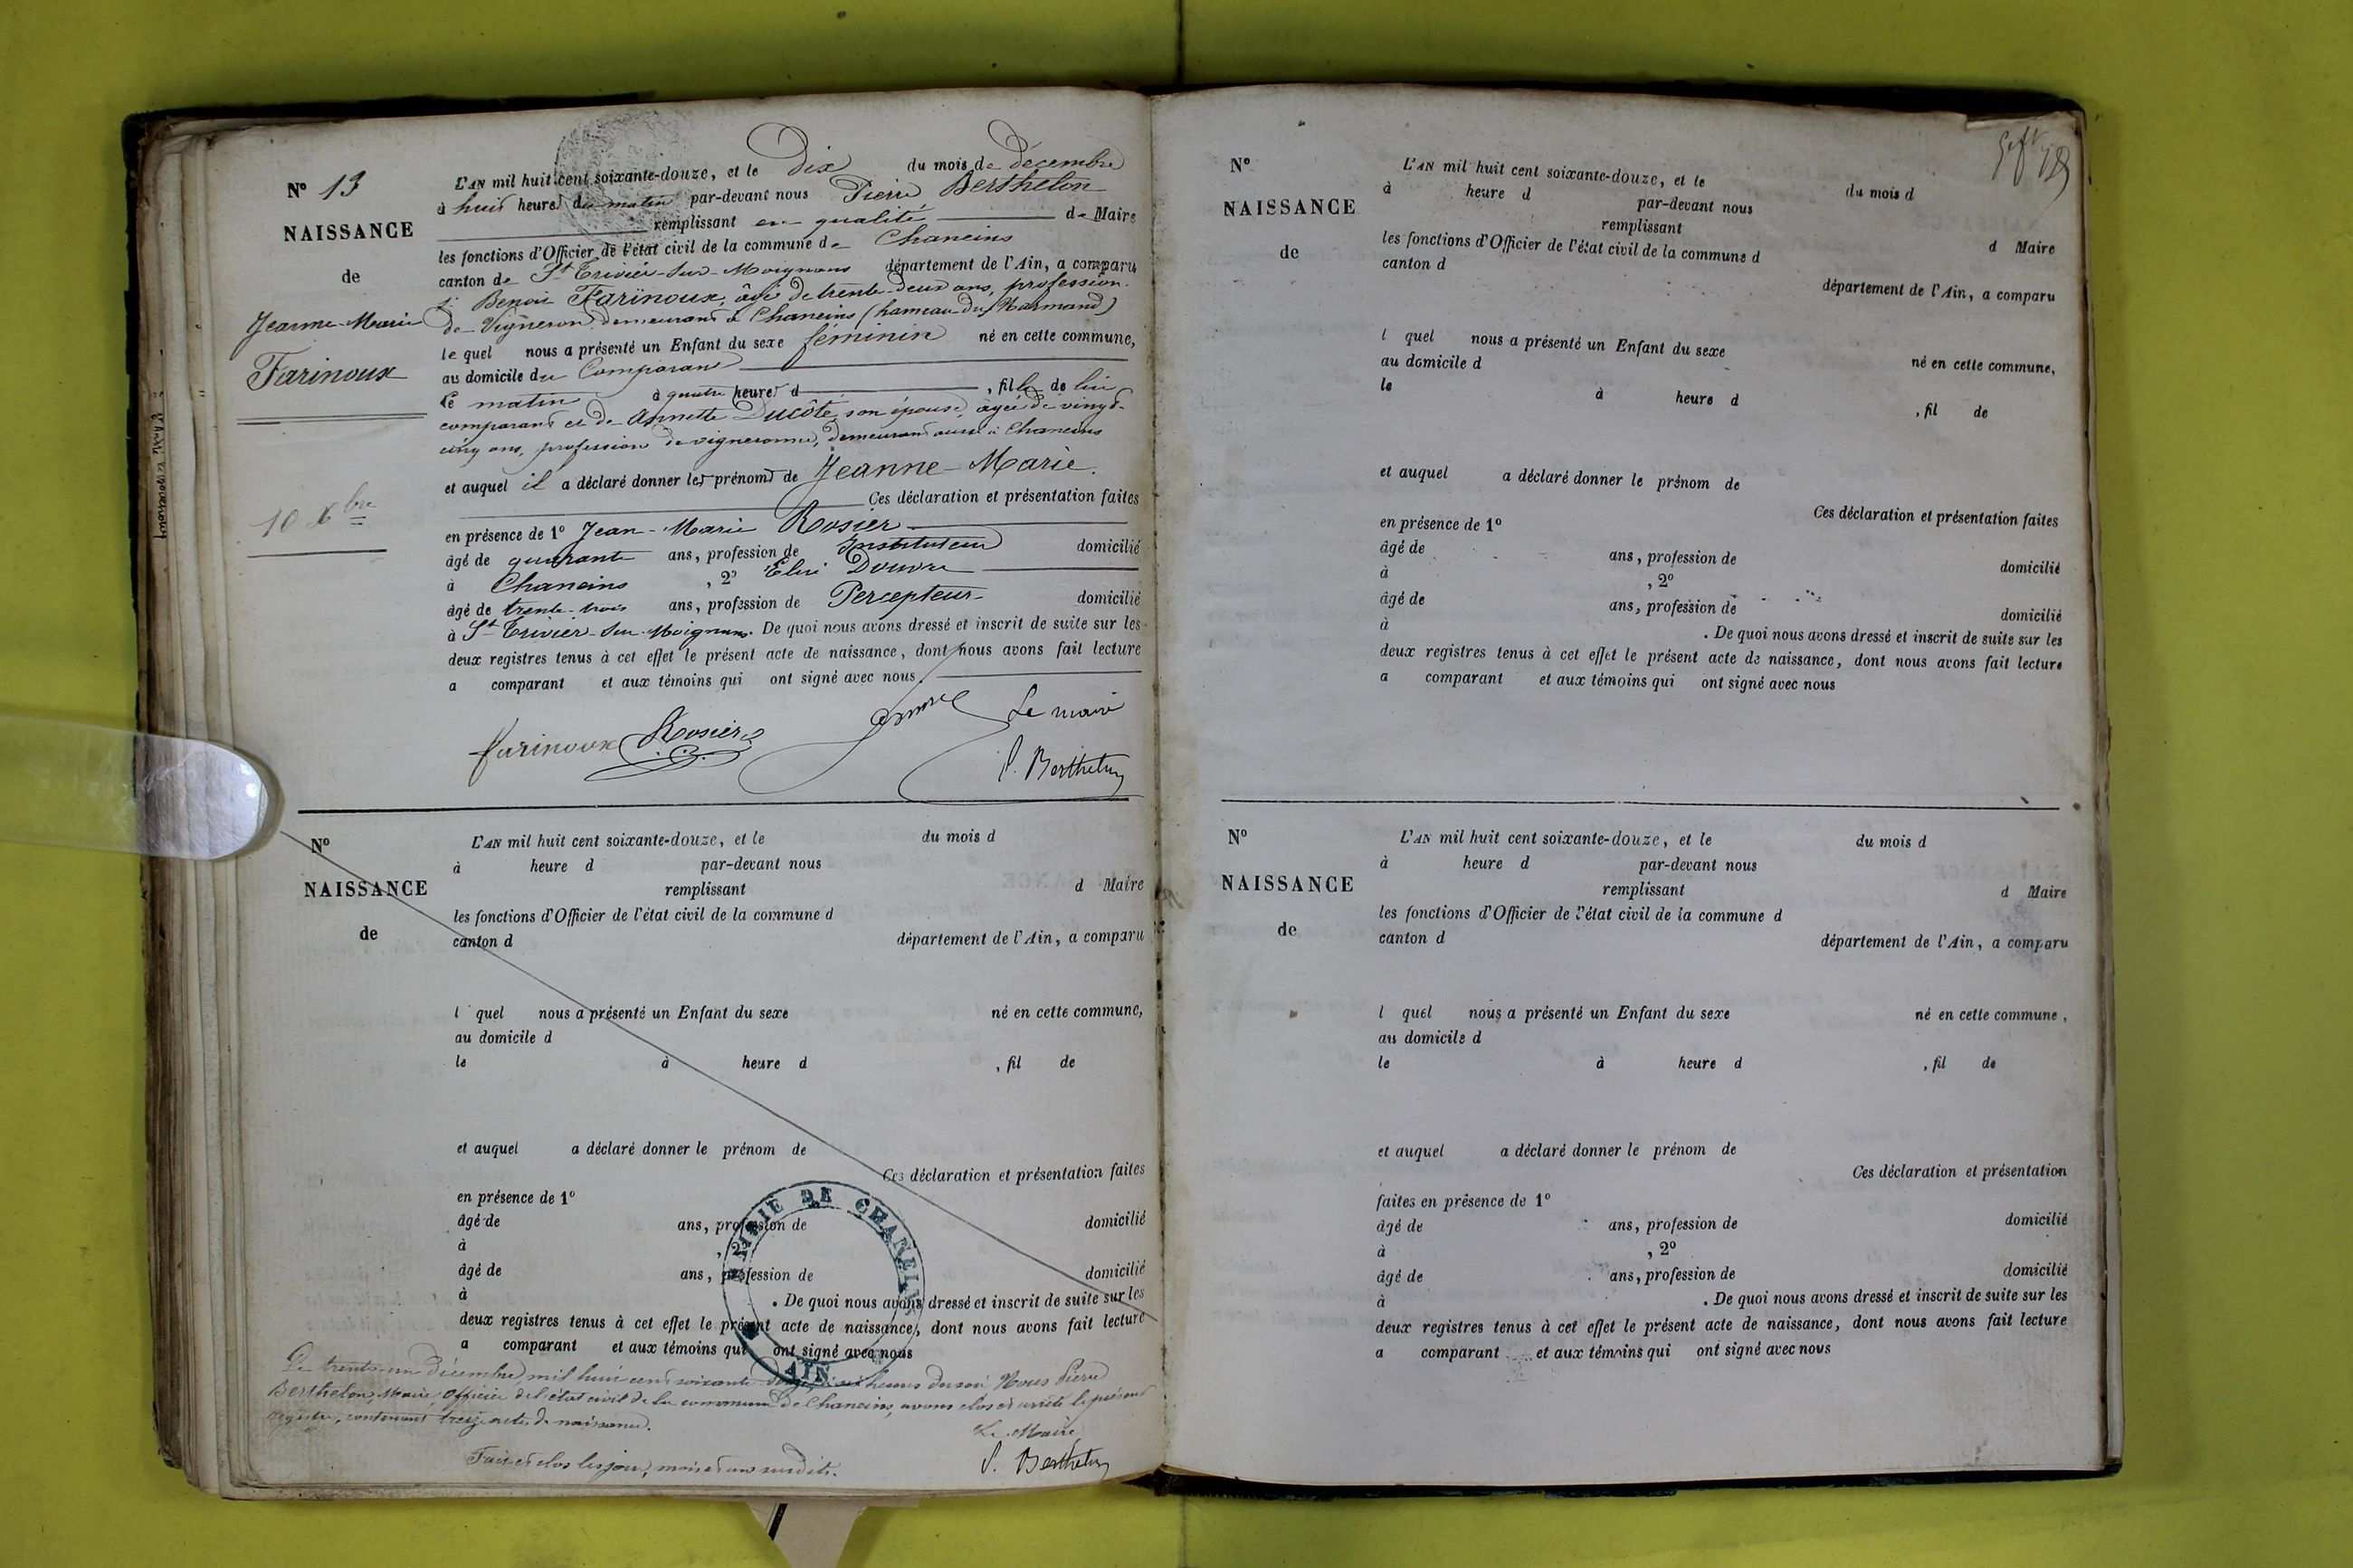 N° 13
NAISSANCE
de
Jeanne-Marie
Farinoux
10 Xbre
L'AN mil huit cent soixante-douze, et le Dix du mois de décembre
à huit heures du matin par-devant nous Pierre Berthelon
remplissant en qualité de Maire
les fonctions d'Officier de l'état civil de la commune de Chaneins
canton de St Trivier-sur-Moignans département de l'Ain, a comparu
Benoit Farinoux, âgé de trente-deux ans, profession
de Vigneron demeurant à Chaneins (hameau du Marmand)
le quel nous a présenté un Enfant du sexe féminin né en cette commune,
au domicile du Comparant
le matin à quatre heures d , fille de lui
comparant et de Annette Ducôté son épouse, âgée de vingt-
cinq ans, profession de vigneronne, demeurant aussi à Chaneins
et auquel il a déclaré donner les prénoms de Jeanne-Marie.
Ces déclaration et présentation faites
en présence de 1° Jean-Marie Rosier
âgé de quarante ans, profession de Instituteur domicilié
à Chaneins , 2° Douvre
âgé de trente-trois ans, profession de Percepteur domicilié
à St Trivier-sur-Moignans. De quoi nous avons dressé et inscrit de suite sur les
deux registres tenus à cet effet le présent acte de naissance, dont nous avons fait lecture
a comparant et aux témoins qui ont signé avec nous.
farinoux Rosier Le maire
P. Berthelon
N°
NAISSANCE
de
L'AN mil huit cent soixante-douze, et le du mois d
à heure d par-devant nous
remplissant d Maire
les fonctions d'Officier de l'état civil de la commune d
canton d département de l'Ain, a comparu
l quel nous a présenté un Enfant du sexe né en cette commune,
au domicile d
le à heure d , fil de
et auquel a déclaré donner le prénom de
Ces déclaration et présentation faites
en présence de 1°
âgé de ans, profession de domicilié
à , 2°
âgé de ans, profession de domicilié
à . De quoi nous avons dressé et inscrit de suite sur les
deux registres tenus à cet effet le présent acte de naissance, dont nous avons fait lecture
a comparant et aux témoins qui ont signé avec nous
MAIRIE DE CHANEINS
AIN
Le trente-un Décembre, mil huit cent soixante douze, heures du soir Nous Pierre
Berthelon, Maire, Officier de l'état civil de la commune de Chaneins, avons clos et arrêté le présent
registre, contenant treize actes de naissance.
Le Maire
Fait et clos les jour, mois et an susdits.
P. Berthelon
N°
NAISSANCE
de
L'AN mil huit cent soixante-douze, et le du mois d
à heure d par-devant nous
remplissant d Maire
les fonctions d'Officier de l'état civil de la commune d
canton d département de l'Ain, a comparu
l quel nous a présenté un Enfant du sexe né en cette commune,
au domicile d
le à heure d , fil de
et auquel a déclaré donner le prénom de
Ces déclaration et présentation faites
en présence de 1°
âgé de ans, profession de domicilié
à , 2°
âgé de ans, profession de domicilié
à . De quoi nous avons dressé et inscrit de suite sur les
deux registres tenus à cet effet le présent acte de naissance, dont nous avons fait lecture
a comparant et aux témoins qui ont signé avec nous
N°
NAISSANCE
de
L'AN mil huit cent soixante-douze, et le du mois d
à heure d par-devant nous
remplissant d Maire
les fonctions d'Officier de l'état civil de la commune d
canton d département de l'Ain, a comparu
l quel nous a présenté un Enfant du sexe né en cette commune,
au domicile d
le à heure d , fil de
et auquel a déclaré donner le prénom de
Ces déclaration et présentation
faites en présence de 1°
âgé de ans, profession de domicilié
à , 2°
âgé de ans, profession de domicilié
à . De quoi nous avons dressé et inscrit de suite sur les
deux registres tenus à cet effet le présent acte de naissance, dont nous avons fait lecture
a comparant et aux témoins qui ont signé avec nous